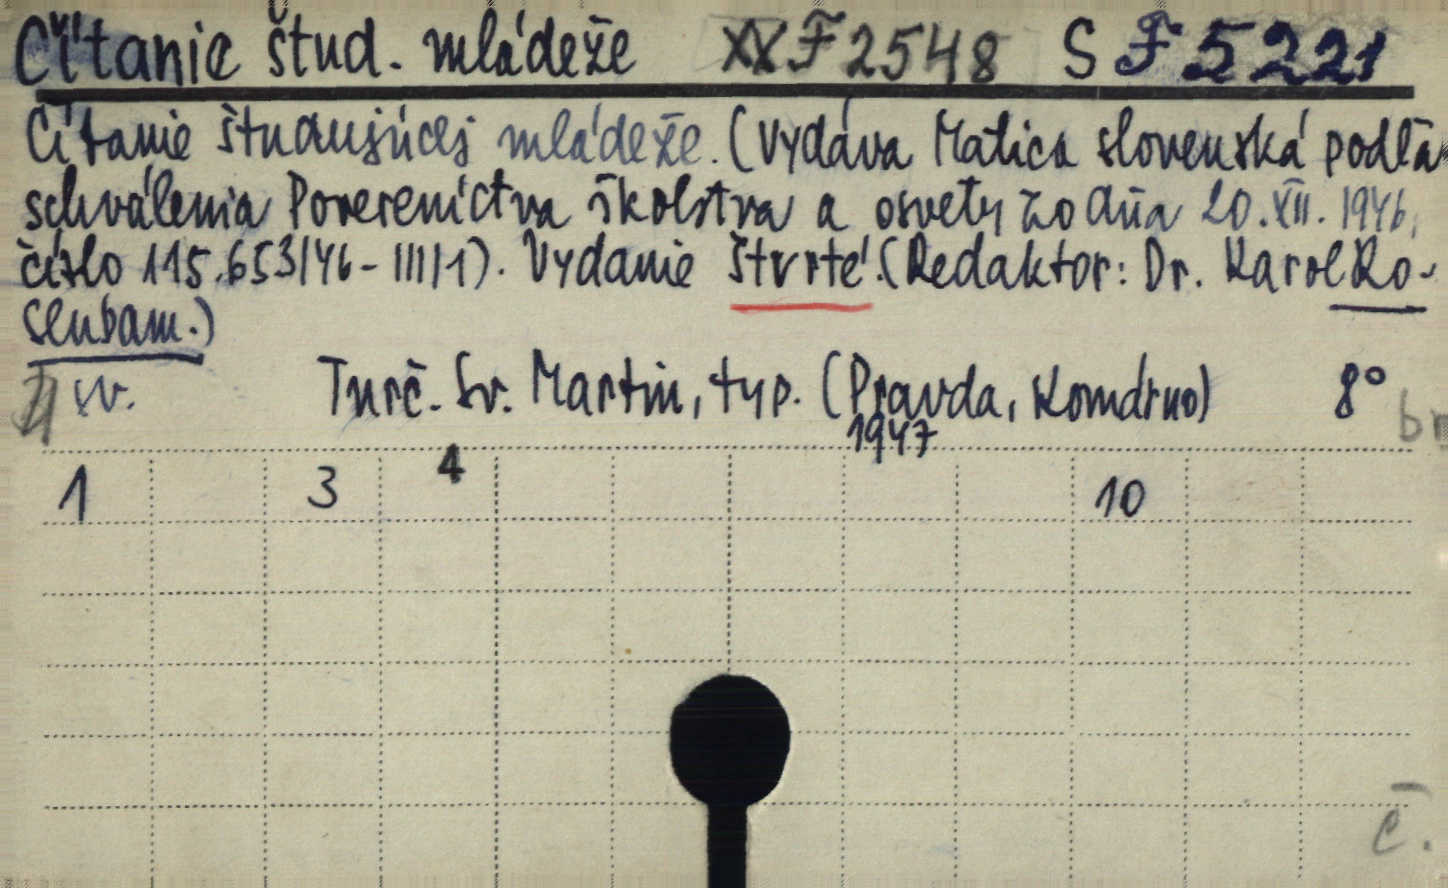 Čítanie štud. mládeže XXF2548 S F5221
Čítanie študujúcej mládeže. (Vydáva Matica slovenská podľa
schválenia Povereníctva školstva a osvety zo dňa 20.XII.1946,
číslo 115.653/46-III/1). Vydanie štvrté. (Redaktor: Dr. Karol Ro-
senbam.)
sv. Turč. Sv. Martin, typ. (Pravda, Komárno) 8° br
1947
1 3 4 10
č.